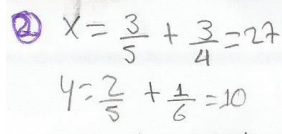 2 X = 3/5 + 3/4 = 27
y = 2/5 + 1/6 = 10